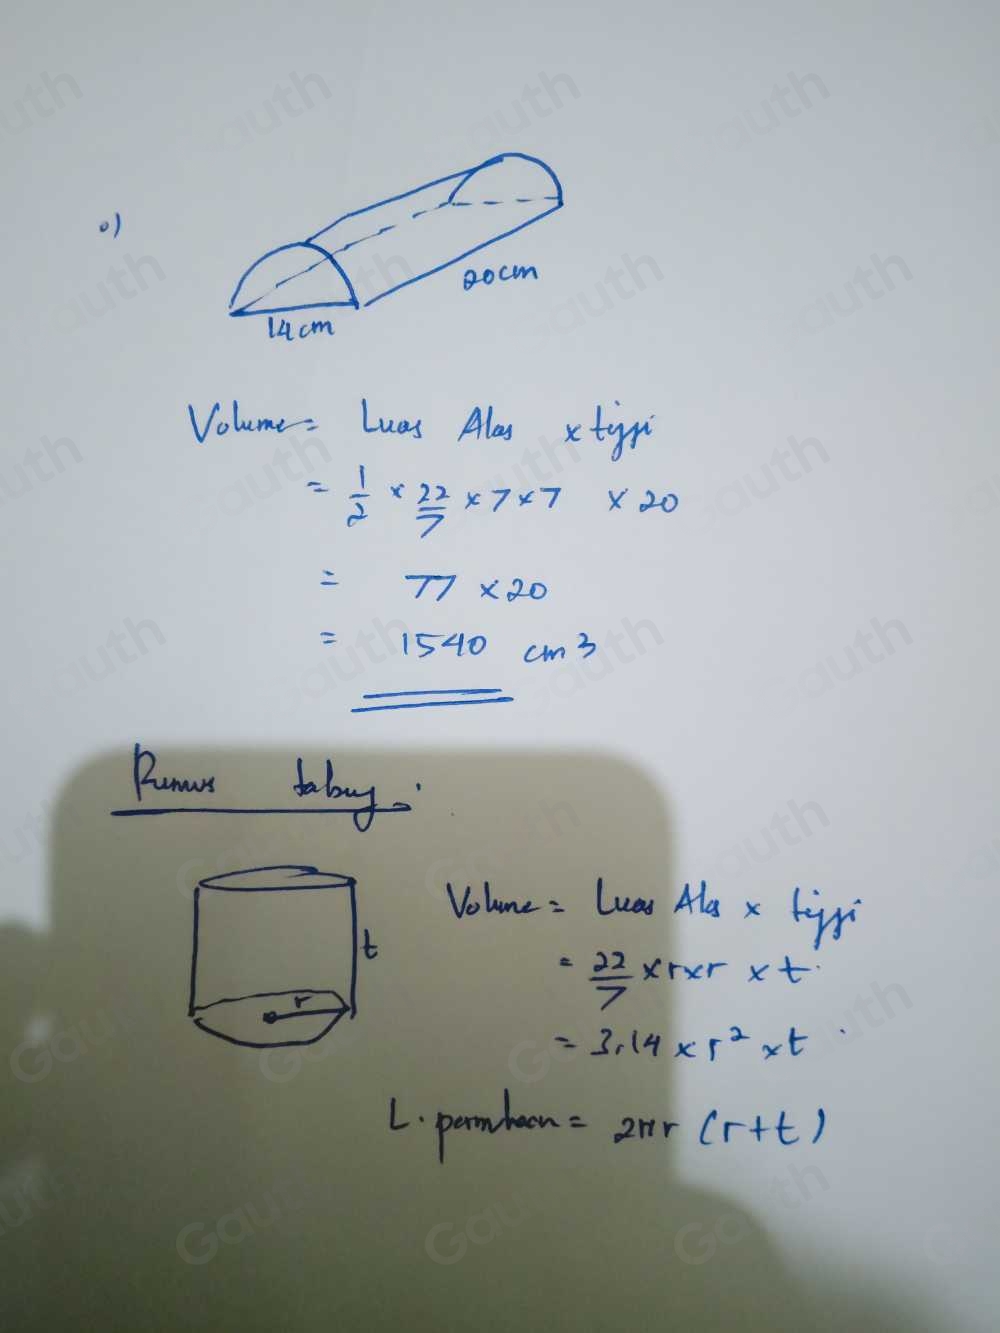 o)
20cm
14cm
Volume = Luas Alas x tinggi
= 1/2 x 22/7 x 7 x 7 x 20
= 77 x 20
= 1540 cm3
Rumus tabung:
t
r
Volume = Luas Alas x tinggi
= 22/7 x r x r x t.
= 3,14 x r² x t.
L. permukaan = 2πr (r+t)
Gauth